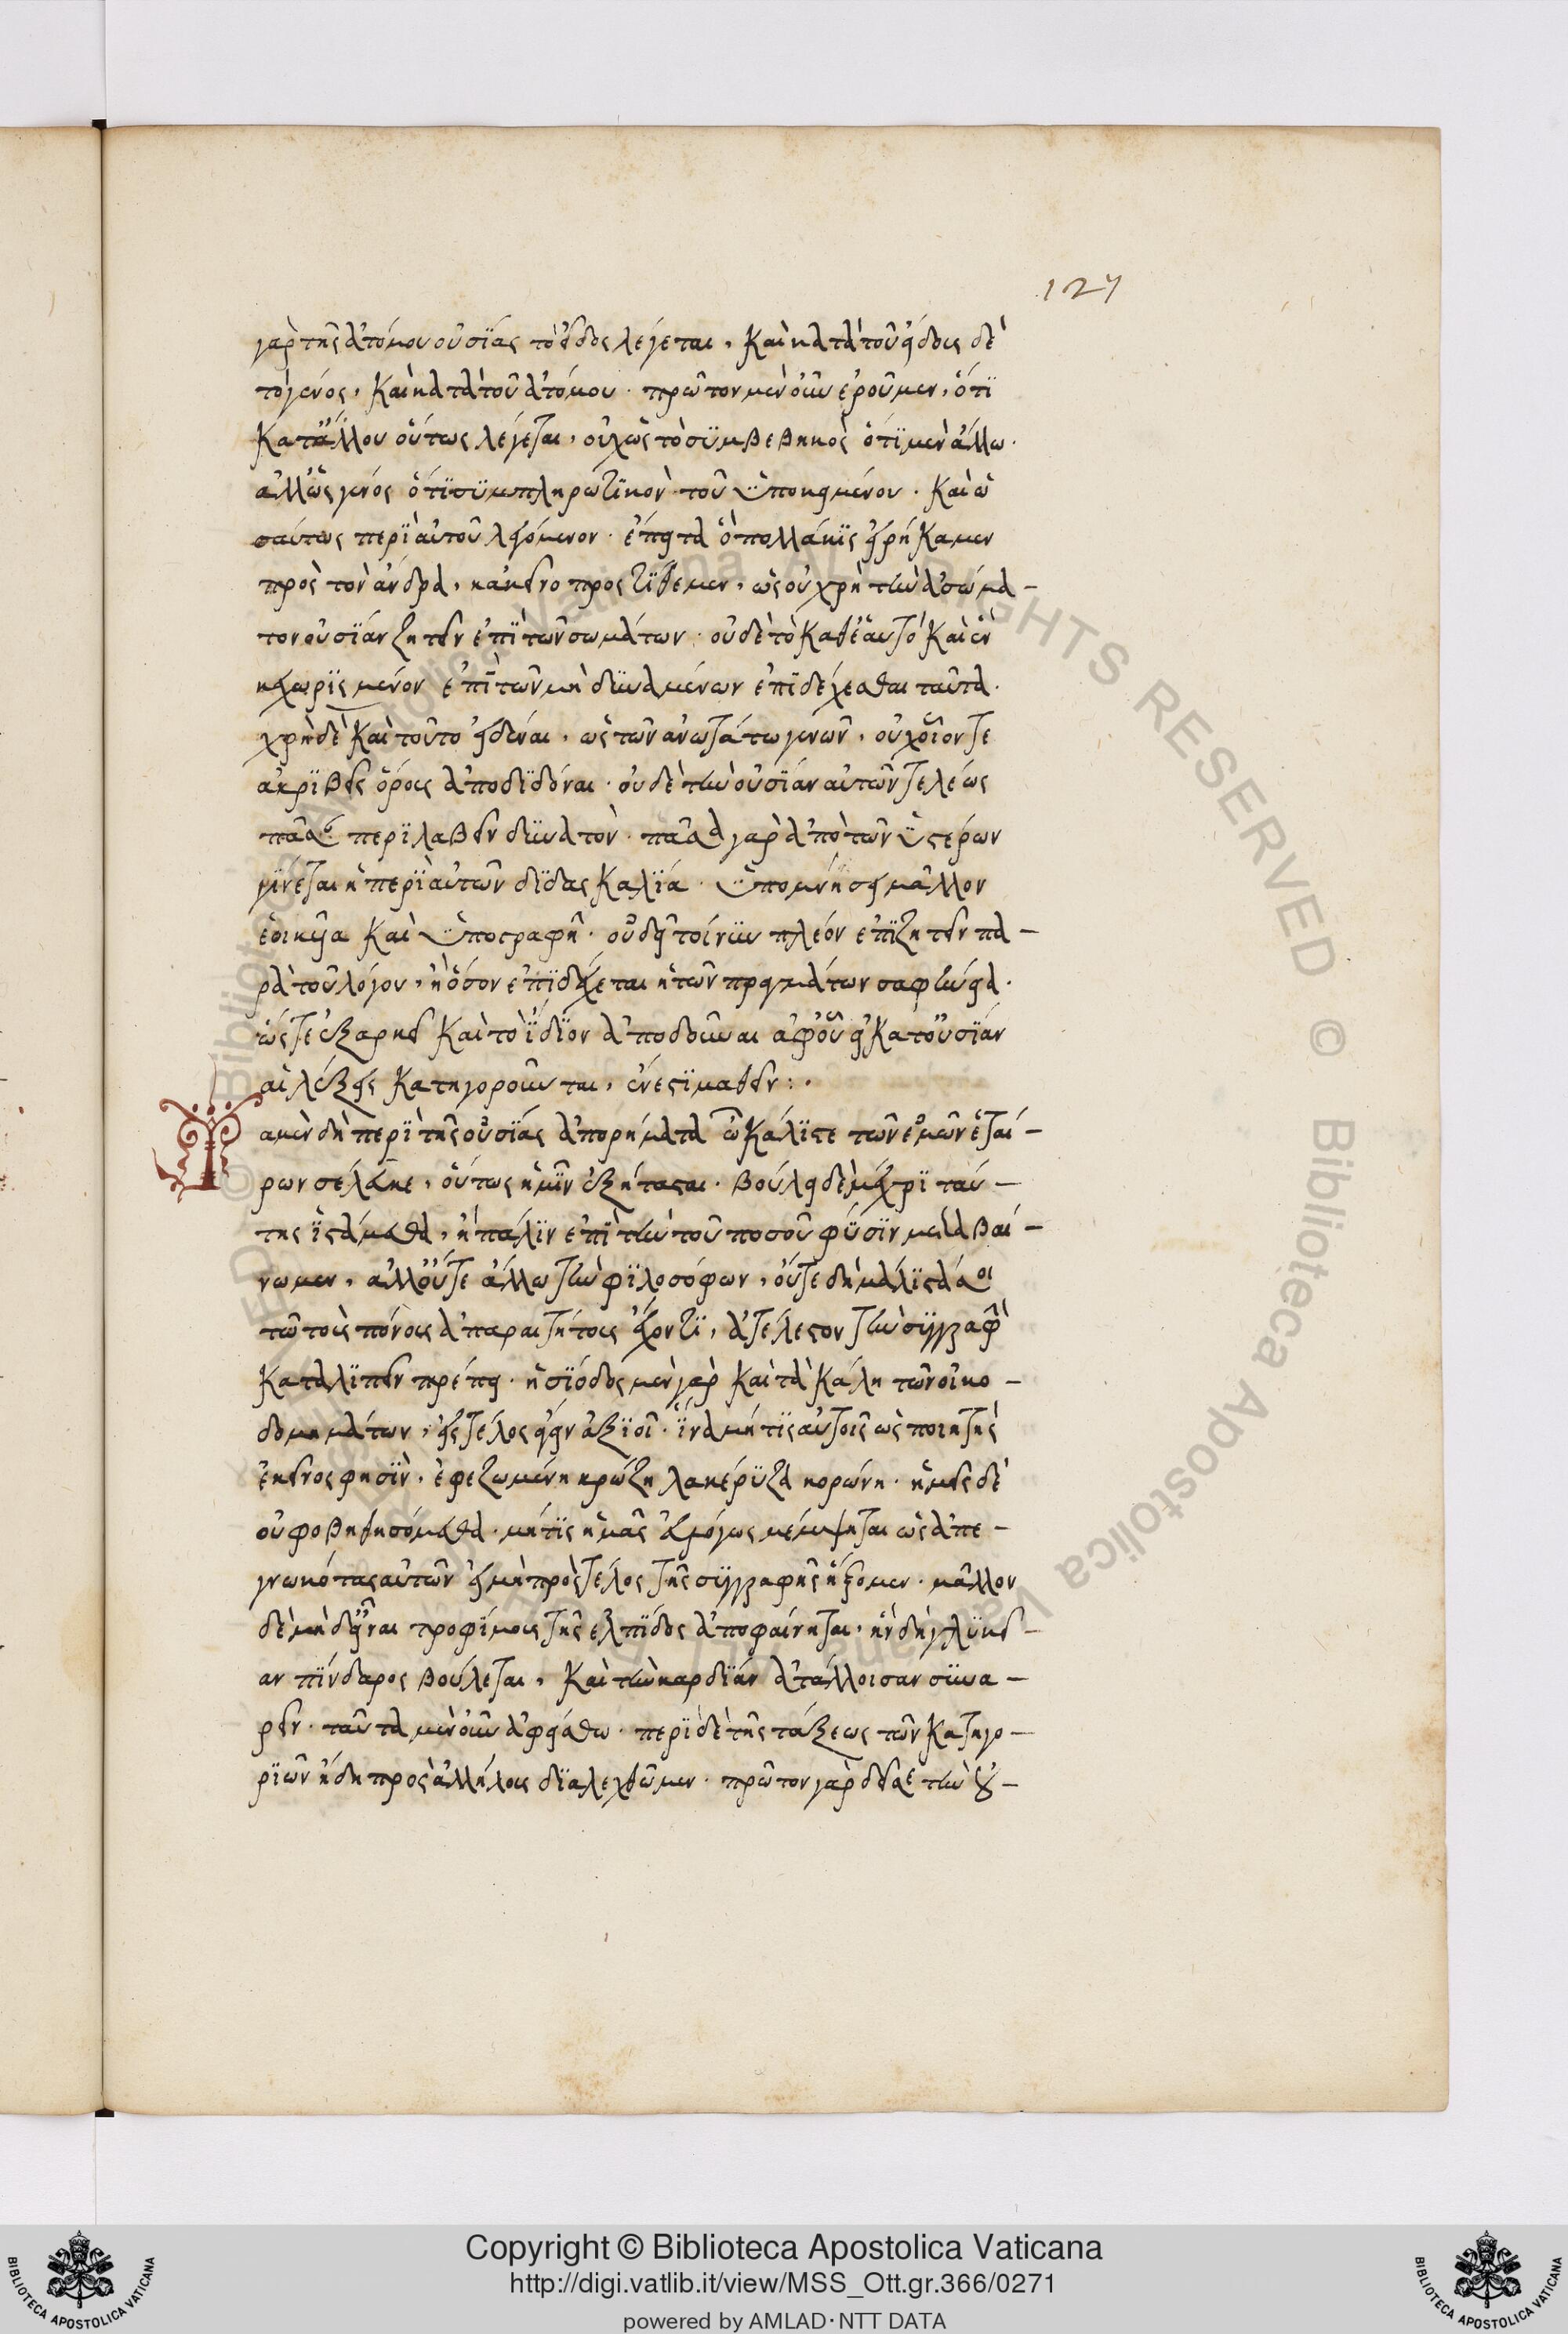 127
γὰρ τῆς ἀτόμου οὐσίας τὸ εἶδος λέγεται, καὶ κατὰ τοῦ εἴδους δὲ
τὸ γένος, καὶ κατὰ τοῦ ἀτόμου. πρῶτον μὲν οὖν ἐροῦμεν, ὅτι
κατ' ἄλλου οὕτως λέγεται, οὐχ ὡς τὸ συμβεβηκὸς ὅτι μὲν ἄλλω.
ἀλλ' ὡς γένος ὅτι συμπληρωτικὸν τοῦ ὑποκειμένου. καὶ ὡ
σαύτως περὶ αὐτοῦ λεγόμενον. ἔπειτα ὃ πολλάκις εἰρήκαμεν
πρὸς τὸν ἄνδρα, κἀκεῖνο προςτίθεμεν, ὡς οὐ χρὴ τὴν ἀσώμα-
τον οὐσίαν ζητεῖν ἐπὶ τῶν σωμάτων. οὐδὲ τὸ καθ' ἑαυτὸ καὶ ἓν
κεχωρισμένον ἐπὶ τῶν μὴ δυναμένων ἐπιδέχεσθαι ταῦτα.
χρὴ δὲ καὶ τοῦτο εἰδέναι, ὡς τῶν ἀνωτάτω γενῶν, οὐχ οἷόν τε
ἀκριβεῖς ὅρους ἀποδιδόναι. οὐδὲ τὴν οὐσίαν αὐτῶν τελέως
πᾶσι περιλαβεῖν δυνατόν. πᾶσα γὰρ ἀπὸ τῶν ὑστέρων
γίνεται ἡ περὶ αὐτῶν διδασκαλία. ὑπομνήσει μᾶλλον
ἐοικυῖα καὶ ὑπογραφῇ. οὐ δεῖ τοίνυν πλέον ἐπιζητεῖν πα-
ρὰ τοῦ λόγου, ἢ ὅσον ἐπιδέχεται ἡ τῶν πραγμάτων σαφήνεια.
ὥστε ἐξαρκεῖ καὶ τὸ ἴδιον ἀποδοῦναι ἀφ' οὗ εἰ κατ' οὐσίαν
αἱ λέξεις κατηγοροῦνται, ἔνεστι μαθεῖν:.
Τὰ μὲν δὴ περὶ τῆς οὐσίας ἀπορήματα ὦ κάλιστε τῶν ἐμῶν ἑταί-
ρων σέλευκε, οὕτως ἡμῖν ἐξήτασται. βούλει δὲ μέχρι ταύ-
της ἱστάμεθα, ἢ πάλιν ἐπὶ τὴν τοῦ ποσοῦ φύσιν μεταβαί-
νωμεν, ἀλλ' οὔτε ἄλλω τῶν φιλοσόφων, οὔτε δὴ μάλιστά σοι
τῶ τοὺς πόνους ἀπαραιτήτους ἔχοντι, ἀτέλεστον τὴν συγγραφὴν
καταλιπεῖν πρέπει. ἡσίοδος μὲν γὰρ καὶ τὰ κάλη τῶν οἰκο-
δομημάτων, εἰς τέλος ἄγειν ἀξιοῖ. ἵνα μή τις αὐτοῖς ὡς ποιητὴς
ἐκεῖνος φησὶν, ἐφεζωμένη κρώζη λακέρυζα κορώνη. ἡμεῖς δὲ
οὐ φοβηθησόμεθα. μή τις ἡμᾶς εὐλόγως μέμψηται ὡς ἀπε-
γνωκότας αὐτῶν εἰ μὴ πρὸς τέλος τῆς συγγραφῆς ἥξομεν. μᾶλλον
δὲ μηδ' εἶναι τροφίμους τῆς ἐλπίδος ἀποφαίνηται, ἣν δὴ γλυκεῖ-
αν πίνδαρος βούλεται, καὶ τὴν καρδίαν ἀτάλλοισαν συνα-
ρεῖν. ταῦτα μὲν οὖν ἀφείσθω. περὶ δὲ τῆς τάξεως τῶν κατηγο-
ριῶν ἤδη πρὸς ἀλλήλους διαλεχθῶμεν. πρῶτον γὰρ δεῖσαι τὴν
Copyright © Biblioteca Apostolica Vaticana
http://digi.vatlib.it/view/MSS_Ott.gr.366/0271
powered by AMLAD·NTT DATA